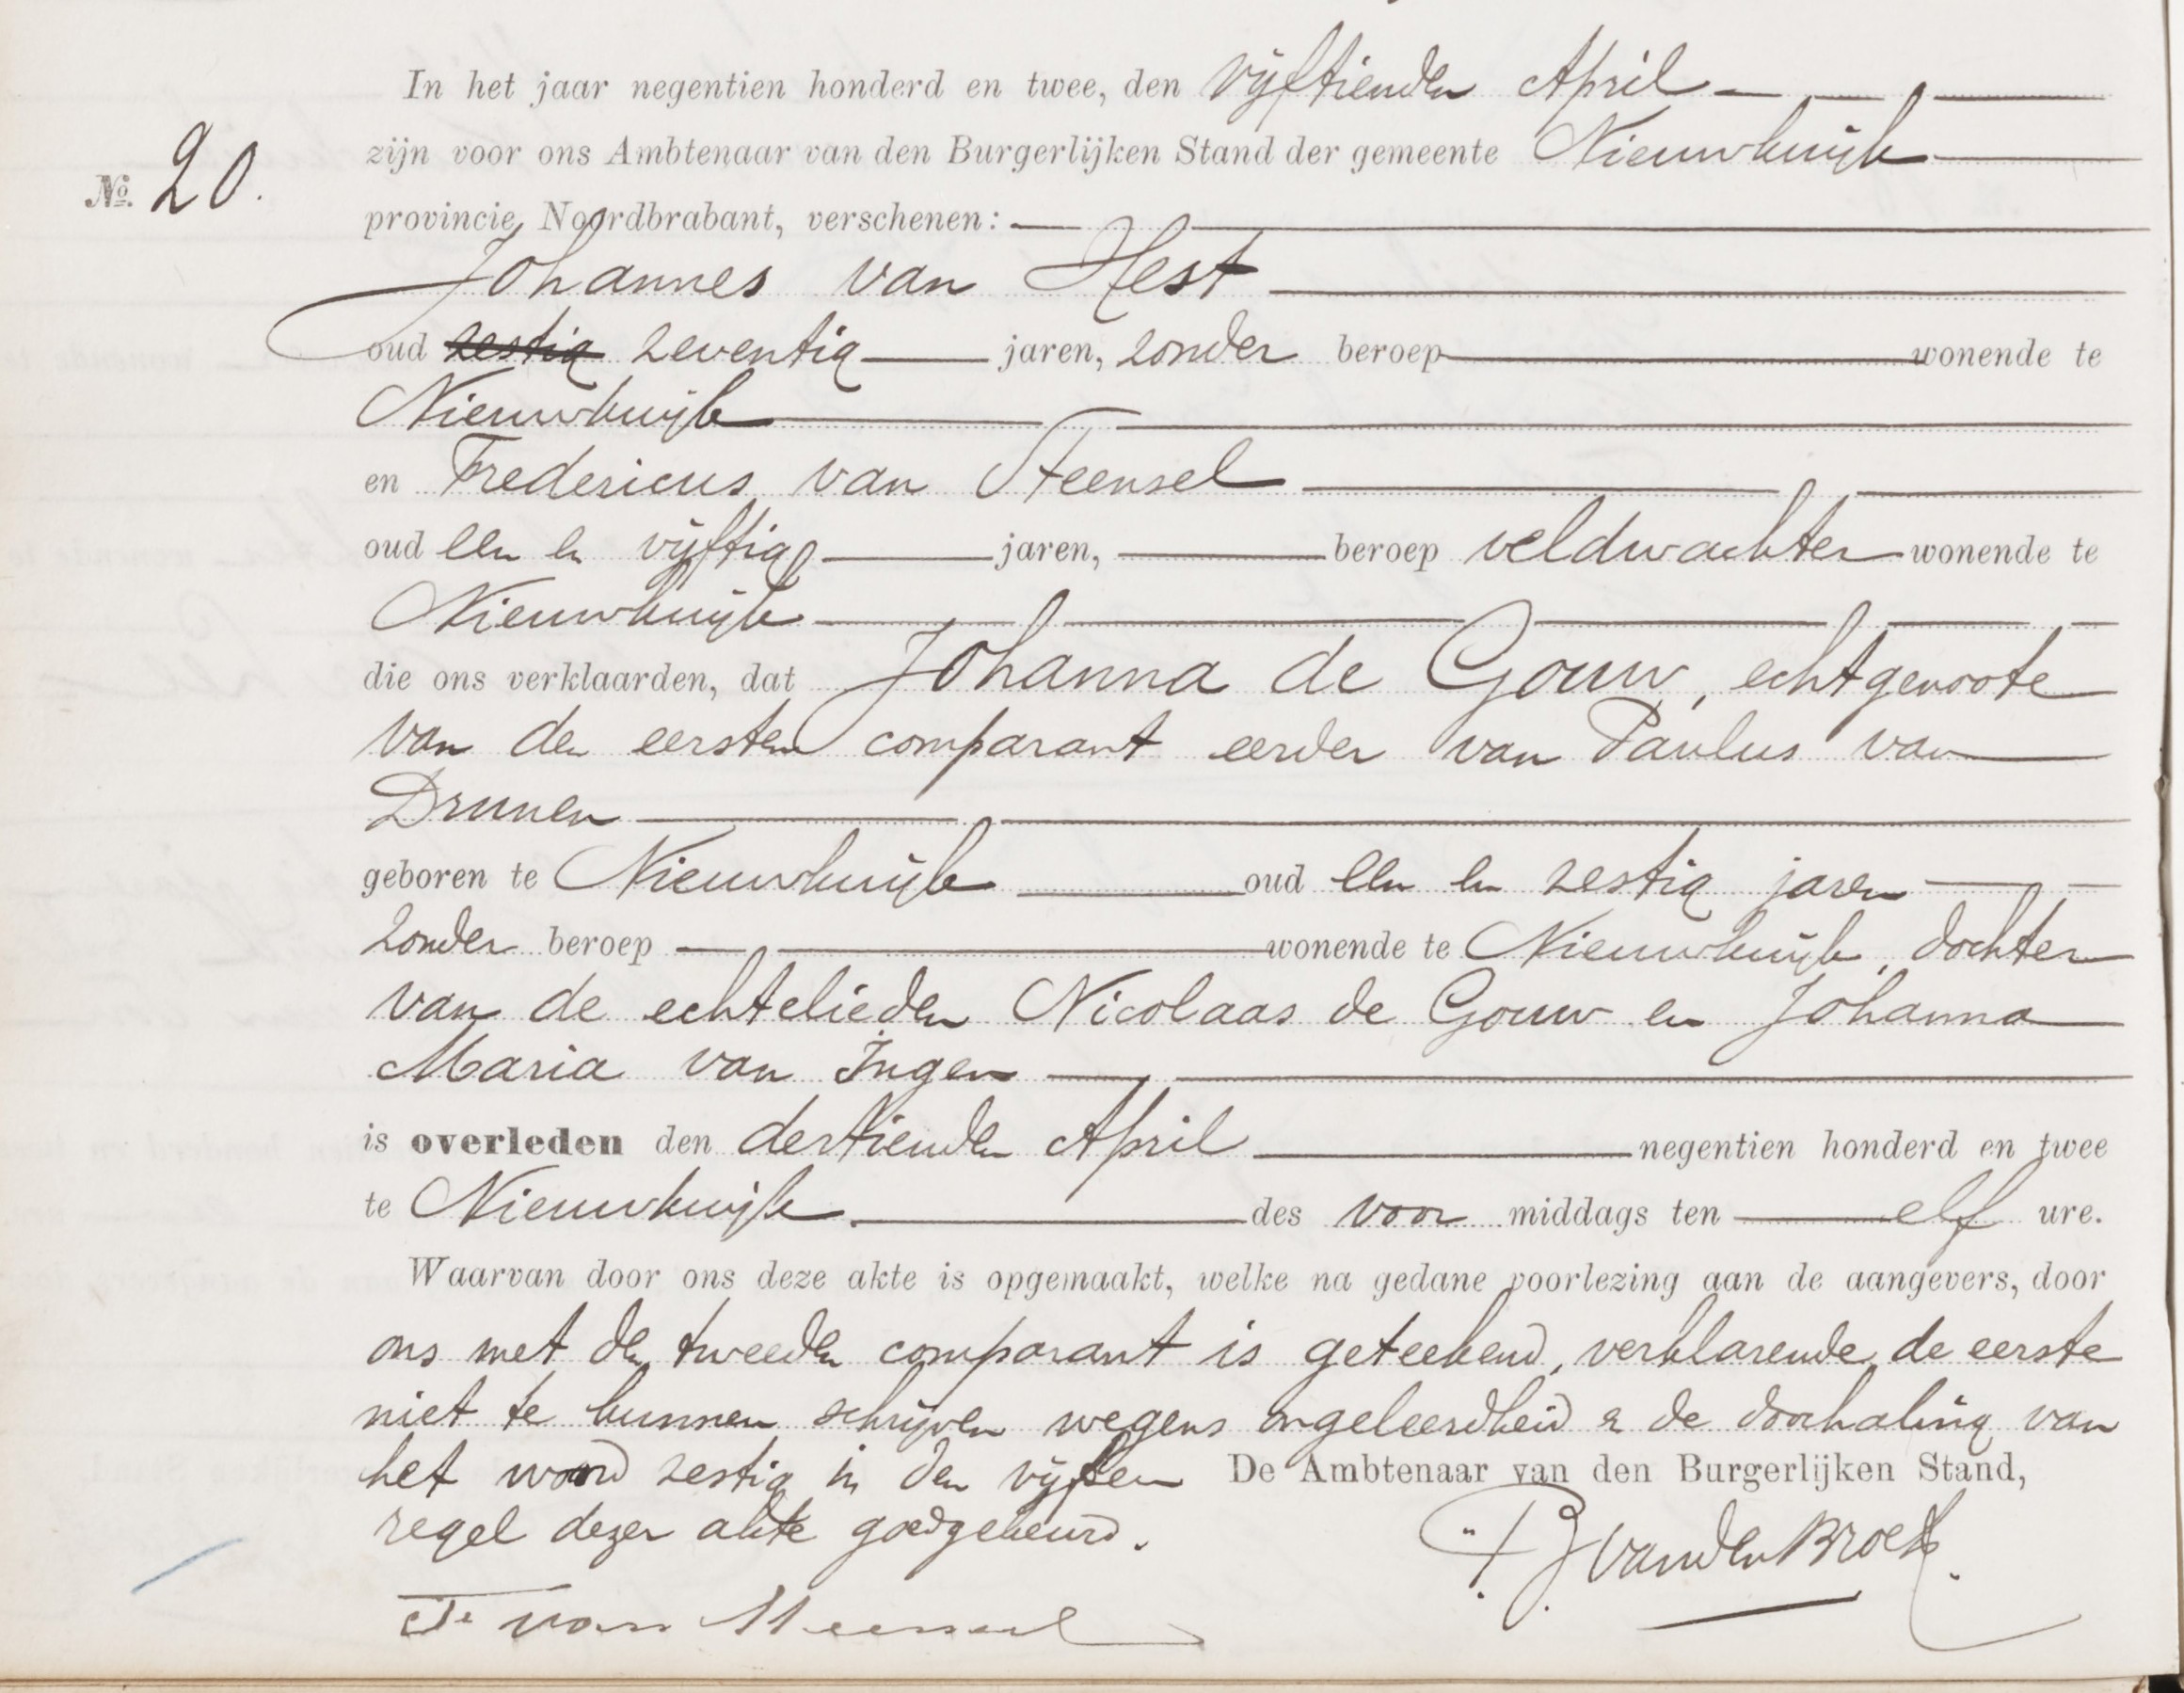 In het jaar negentien honderd en twee, den vijftienden April
zijn voor ons Ambtenaar van den Burgerlijken Stand der gemeente Nieuwkuijk
No. 20.
provincie Noordbrabant, verschenen:
Johannes van Hest
oud zestig zeventig jaren, zonder beroep wonende te
Nieuwkuijk
en Fredericus van Steensel
oud een en vijftig jaren, beroep veldwachter wonende te
Nieuwkuijk
die ons verklaarden, dat Johanna de Gouw, echtgenoote
van den eersten comparant eerder van Paulus van
Drunen
geboren te Nieuwkuijk oud een en zestig jaren
zonder beroep wonende te Nieuwkuijk, dochter
van de echtelieden Nicolaas de Gouw en Johanna
Maria van Ingen
is overleden den dertienden April negentien honderd en twee
te Nieuwkuijk des voor middags ten elf ure.
Waarvan door ons deze akte is opgemaakt, welke na gedane voorlezing aan de aangevers, door
ons met den tweeden comparant is geteekend, verklarende de eerste
niet te kunnen schrijven wegens ongeleerdheid & de doorhaling van
het woord zestig in den vijfden De Ambtenaar van den Burgerlijken Stand,
regel dezer akte goedgekeurd.
P J van den Broek
F van Steensel